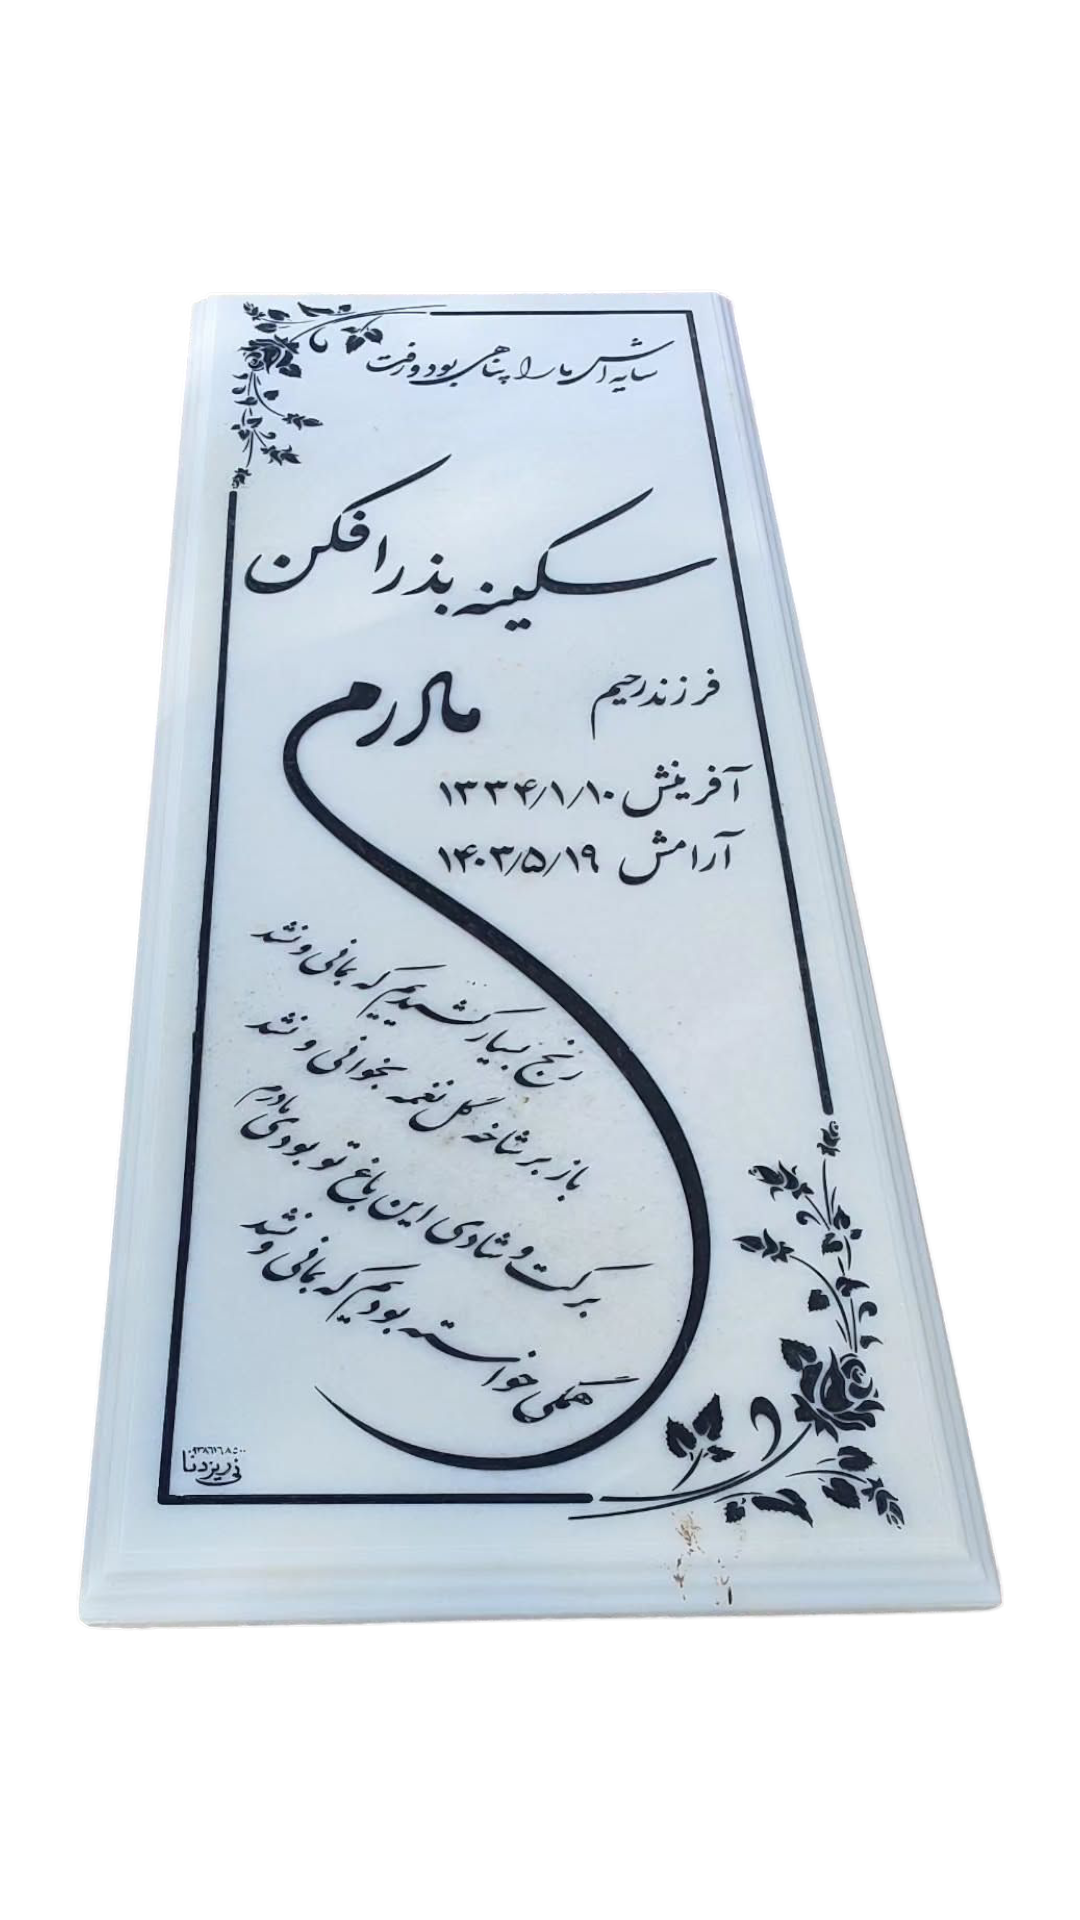 سایه اش ما را پناهی بود و رفت
سکینه بذرافکن
فرزند رحیم
مادرم
آفرینش ۱۳۳۴/۱/۱۰
آرامش ۱۴۰۳/۵/۱۹
رنج بسیار کشیدیم که بمانی و نشد
باز بر شاخه گل نغمه بخوانی و نشد
برکت و شادی این باغ تو بودی مادرم
همگی خواسته بودیم که بمانی و نشد
نی ریز دنا